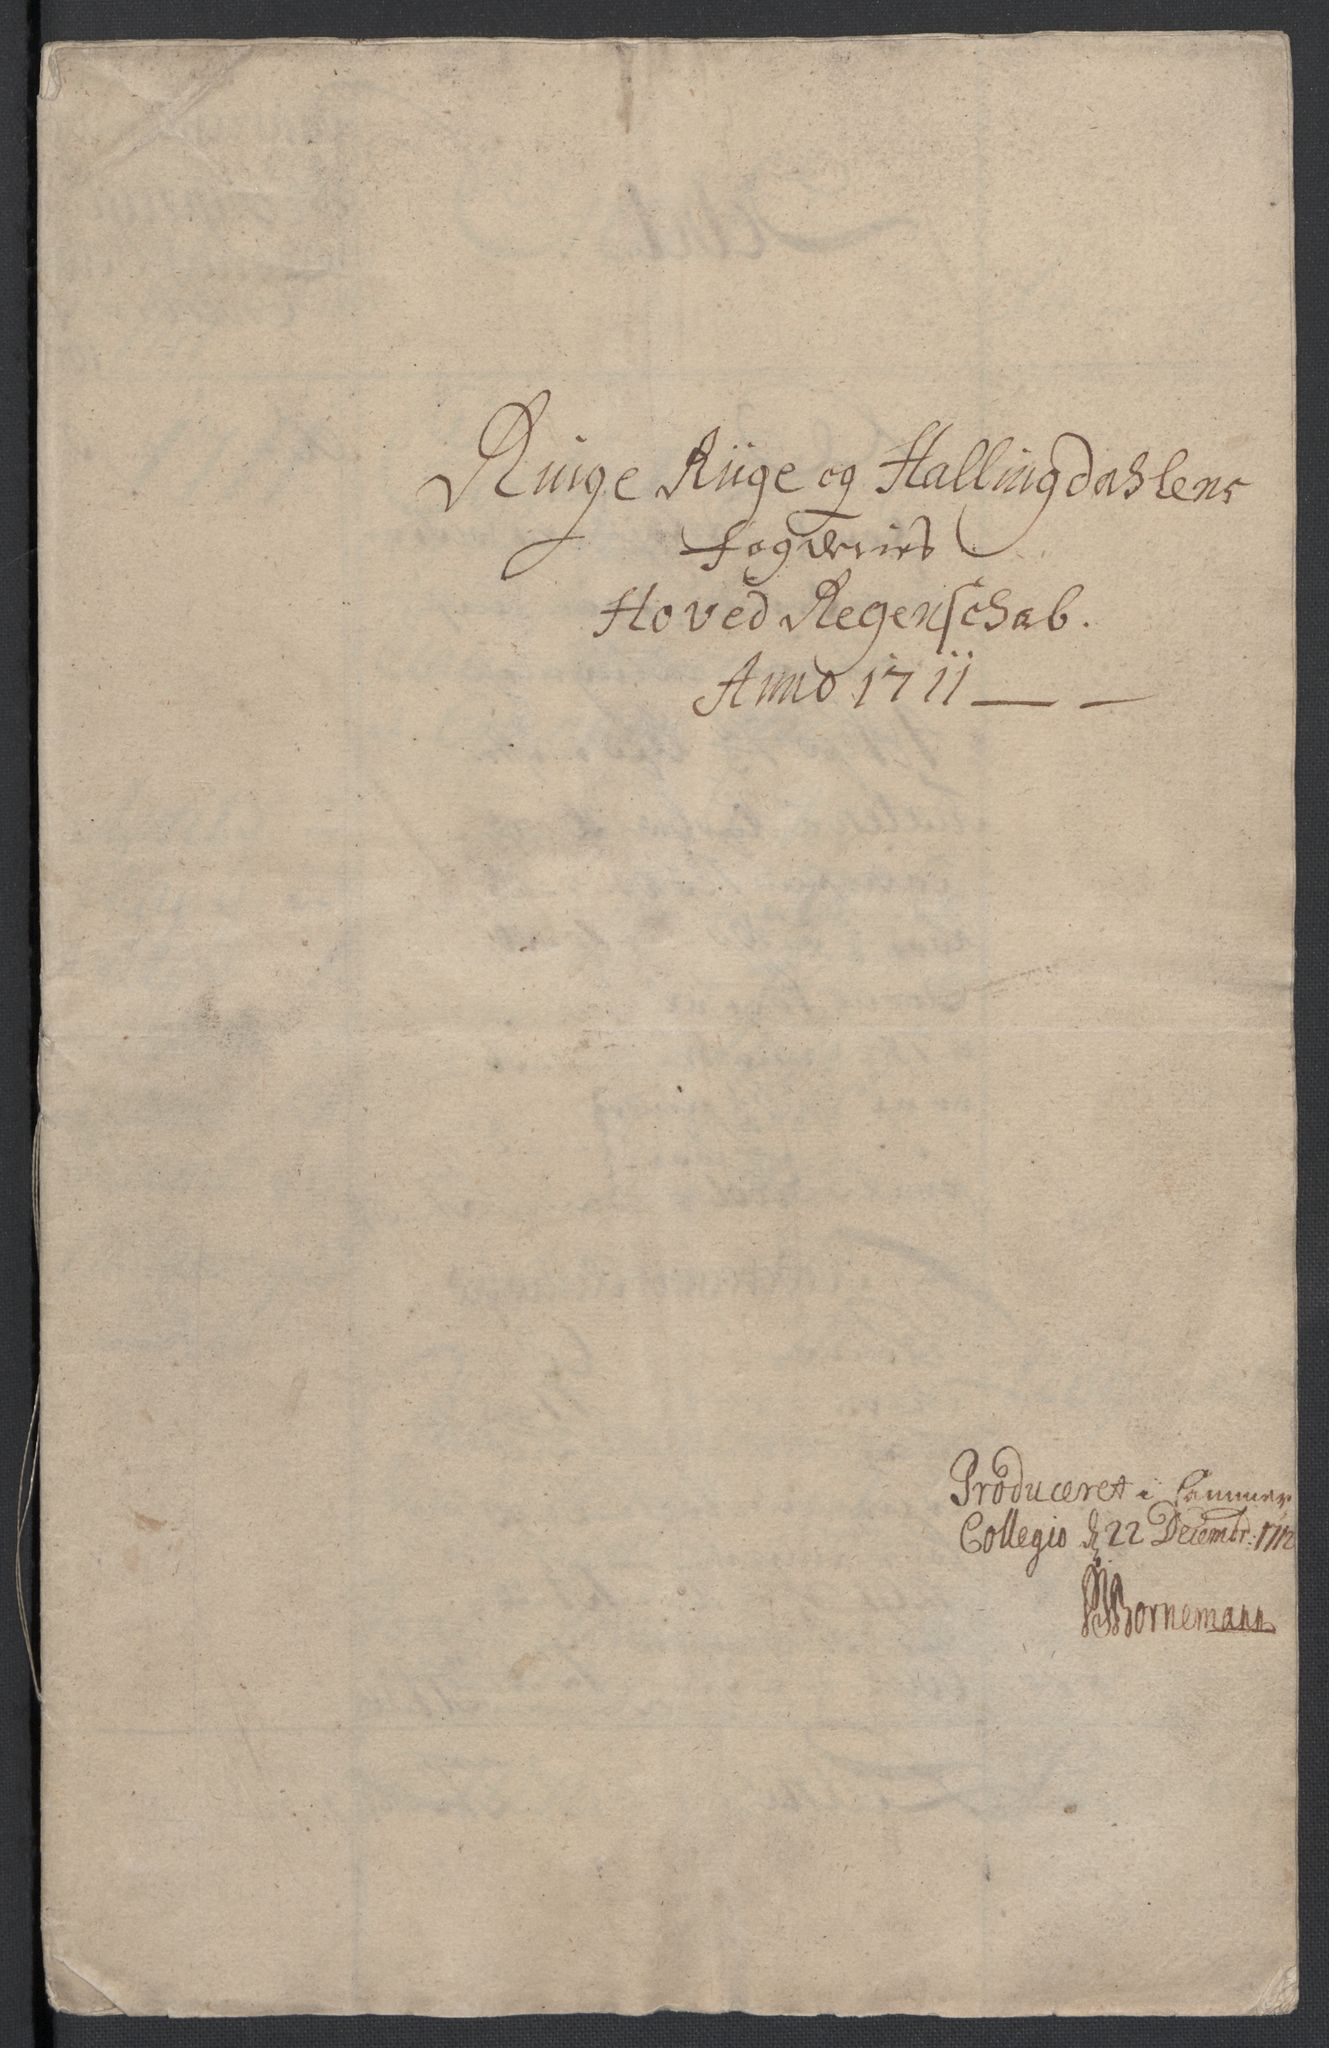 Ringe Riige og Hallingdahlens
fogderies
Hoved Regenschab.
Anno 1711
Produceret i Cammer
Collegio d 22 Decembr: 1712
Bornemann